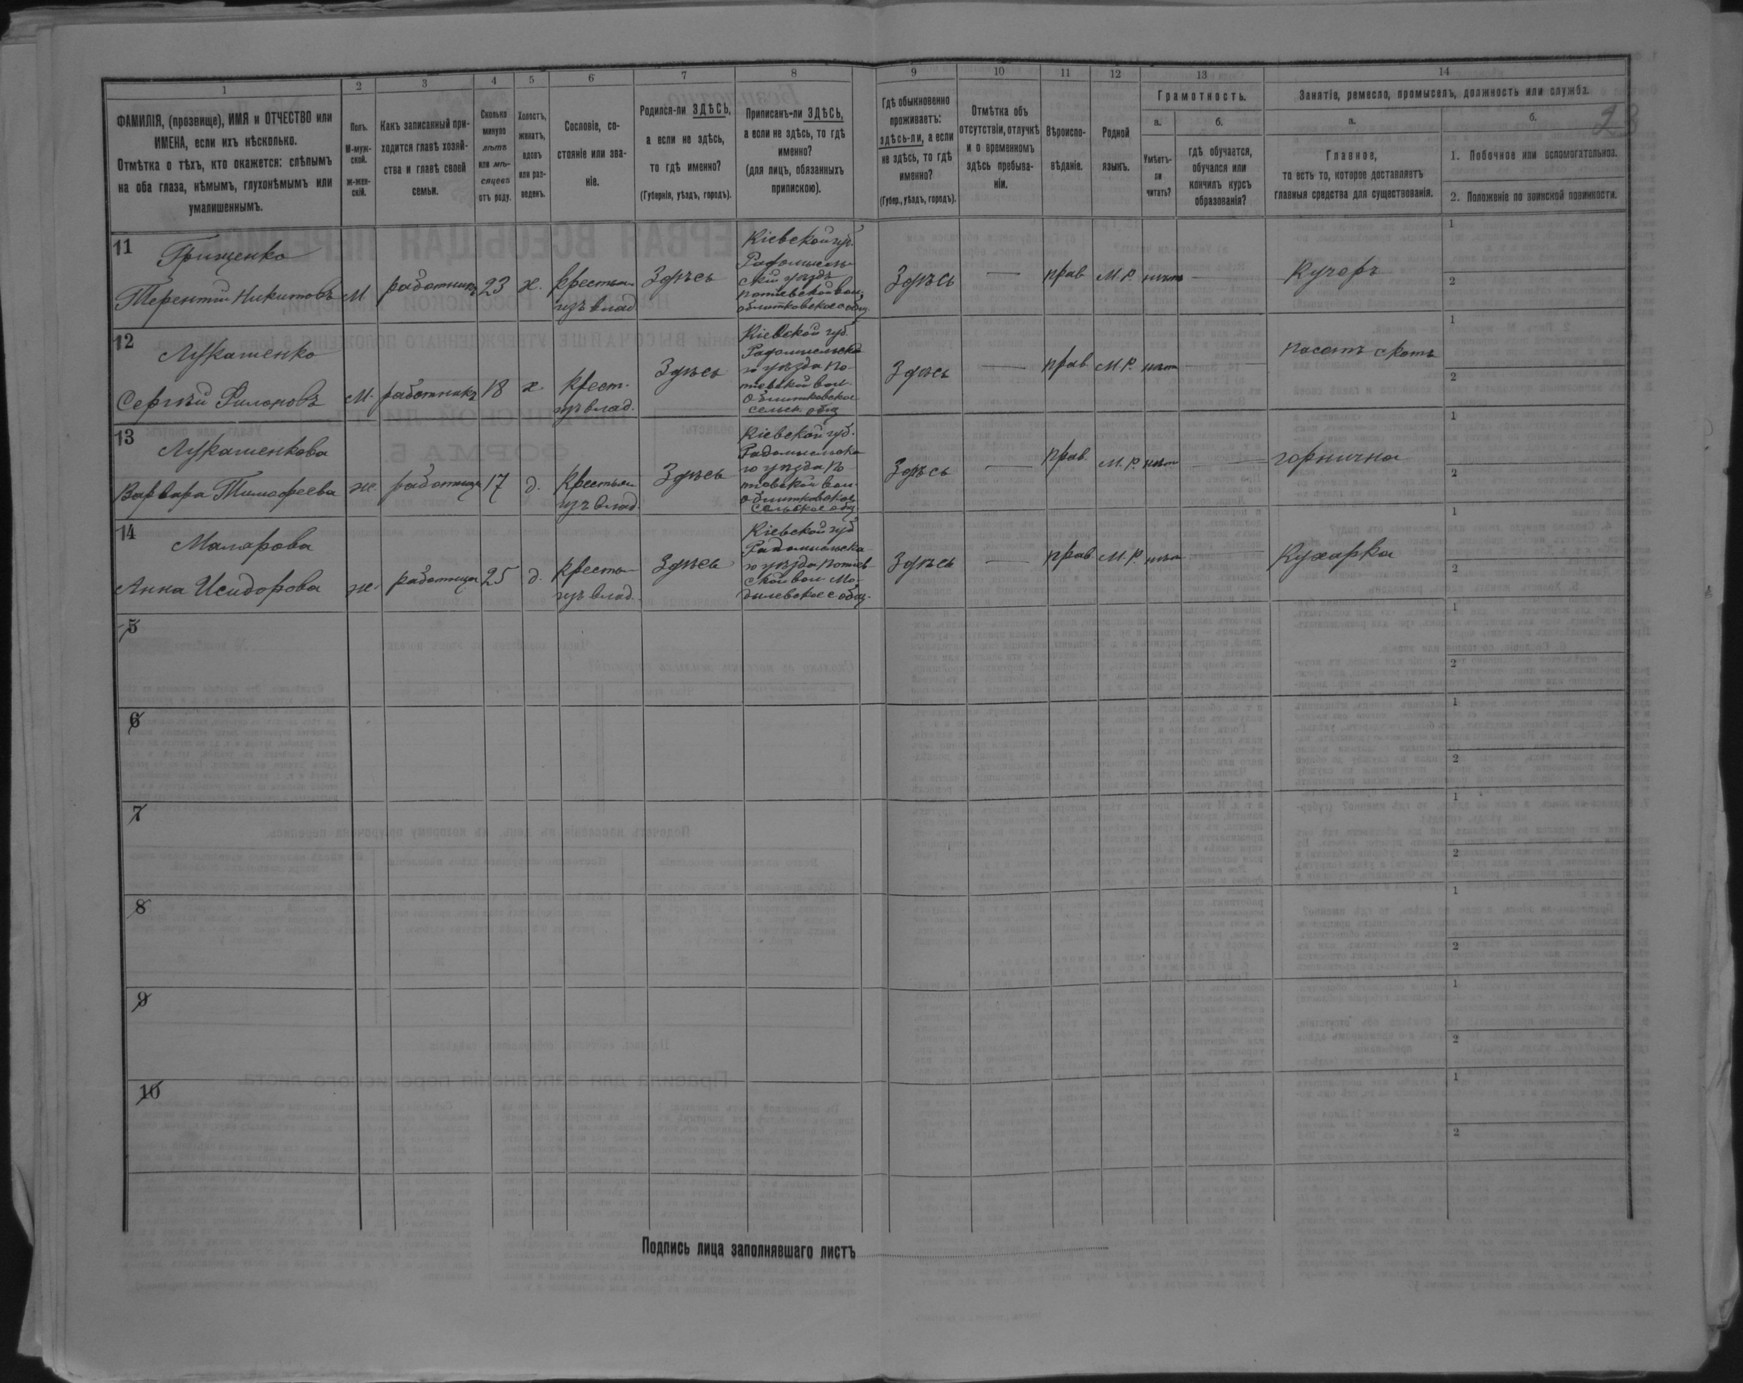 1 2 3 4 5 6 7 8 9 10 11 12 13 14
ФАМИЛІЯ, (прозвище), ИМЯ и ОТЧЕСТВО или
ИМЕНА, если ихъ нѣсколько.
Отмѣтка о тѣхъ, кто окажется: слѣпымъ
на оба глаза, нѣмымъ, глухонѣмымъ или
умалишеннымъ.
Полъ.
М-муж-
ской.
ж-жен-
скій.
Какъ записанный при-
ходится главѣ хозяй-
ства и главѣ своей
семьи.
Сколько
минуло
лѣтъ
или мѣ-
сяцевъ
отъ роду.
Холостъ,
женатъ,
вдовъ
или раз-
веденъ.
Сословіе, со-
стояніе или зва-
ніе.
Родился-ли ЗДѢСЬ,
а если не здѣсь,
то гдѣ именно?
(Губернія, уѣздъ, городъ).
Приписанъ-ли ЗДѢСЬ,
а если не здѣсь, то гдѣ
именно?
(для лицъ, обязанныхъ
припискою).
Гдѣ обыкновенно
проживаетъ:
здѣсь-ли, а если
не здѣсь, то гдѣ
именно?
(Губер., уѣздъ, городъ).
Отмѣтка объ
отсутствіи, отлучкѣ
и о временномъ
здѣсь пребыва-
ніи.
Вѣроиспо-
вѣданіе.
Родной
языкъ.
Грамотность.
а.
Умѣетъ-
ли
читать?
б.
гдѣ обучается,
обучался или
кончилъ курсъ
образованія?
Занятія, ремесло, промыселъ, должность или служба.
23
а.
Главное,
то есть то, которое доставляетъ
главныя средства для существованія.
б.
1. Побочное или вспомогательное.
2. Положеніе по воинской повинности.
11
Грищенко
Терентій Никитовъ
М
работникъ
23
х.
крестьян
изъ влад
Здѣсь
Кіевской губ.
Радомысль-
скій уѣздъ
Потіевской вол,
Облитковское общ
Здѣсь
—
прав
М.Р.
нѣтъ
—
Кучеръ
1
2
12
Лукашенко
Сергѣй Филоновъ
М.
работникъ
18
х.
Крест.
изъ влад.
Здѣсь
Кіевской губ.
Радомысльска
го уѣзда По-
тіевской вол.
Облитковское
сельск. общ
Здѣсь
—
прав
М.Р.
нѣтъ
—
пасетъ скотъ
1
2
13
Лукашенкова
Варвара Тимофеева
ж
работница
17
д.
Крестьян
изъ влад
Здѣсь
Кіевской губ.
Радомысльска
го уѣзда По
тіевской вол.
Облитковское
Сельское общ
Здѣсь
—
прав
М.Р.
нѣтъ
—
горнична
1
2
14
Маларова
Анна Исидорова
ж.
работница
25
д.
Кресть-
изъ влад.
Здѣсь
Кіевской губ
Радомысльска
го уѣзда Потіев
ской вол Мо-
дилевское общ.
Здѣсь
—
прав
М.Р.
нѣтъ
—
Кухарка
1
2
5
1
2
6
1
2
7
1
2
8
1
2
9
1
2
10
1
2
Подпись лица заполнявшаго листъ